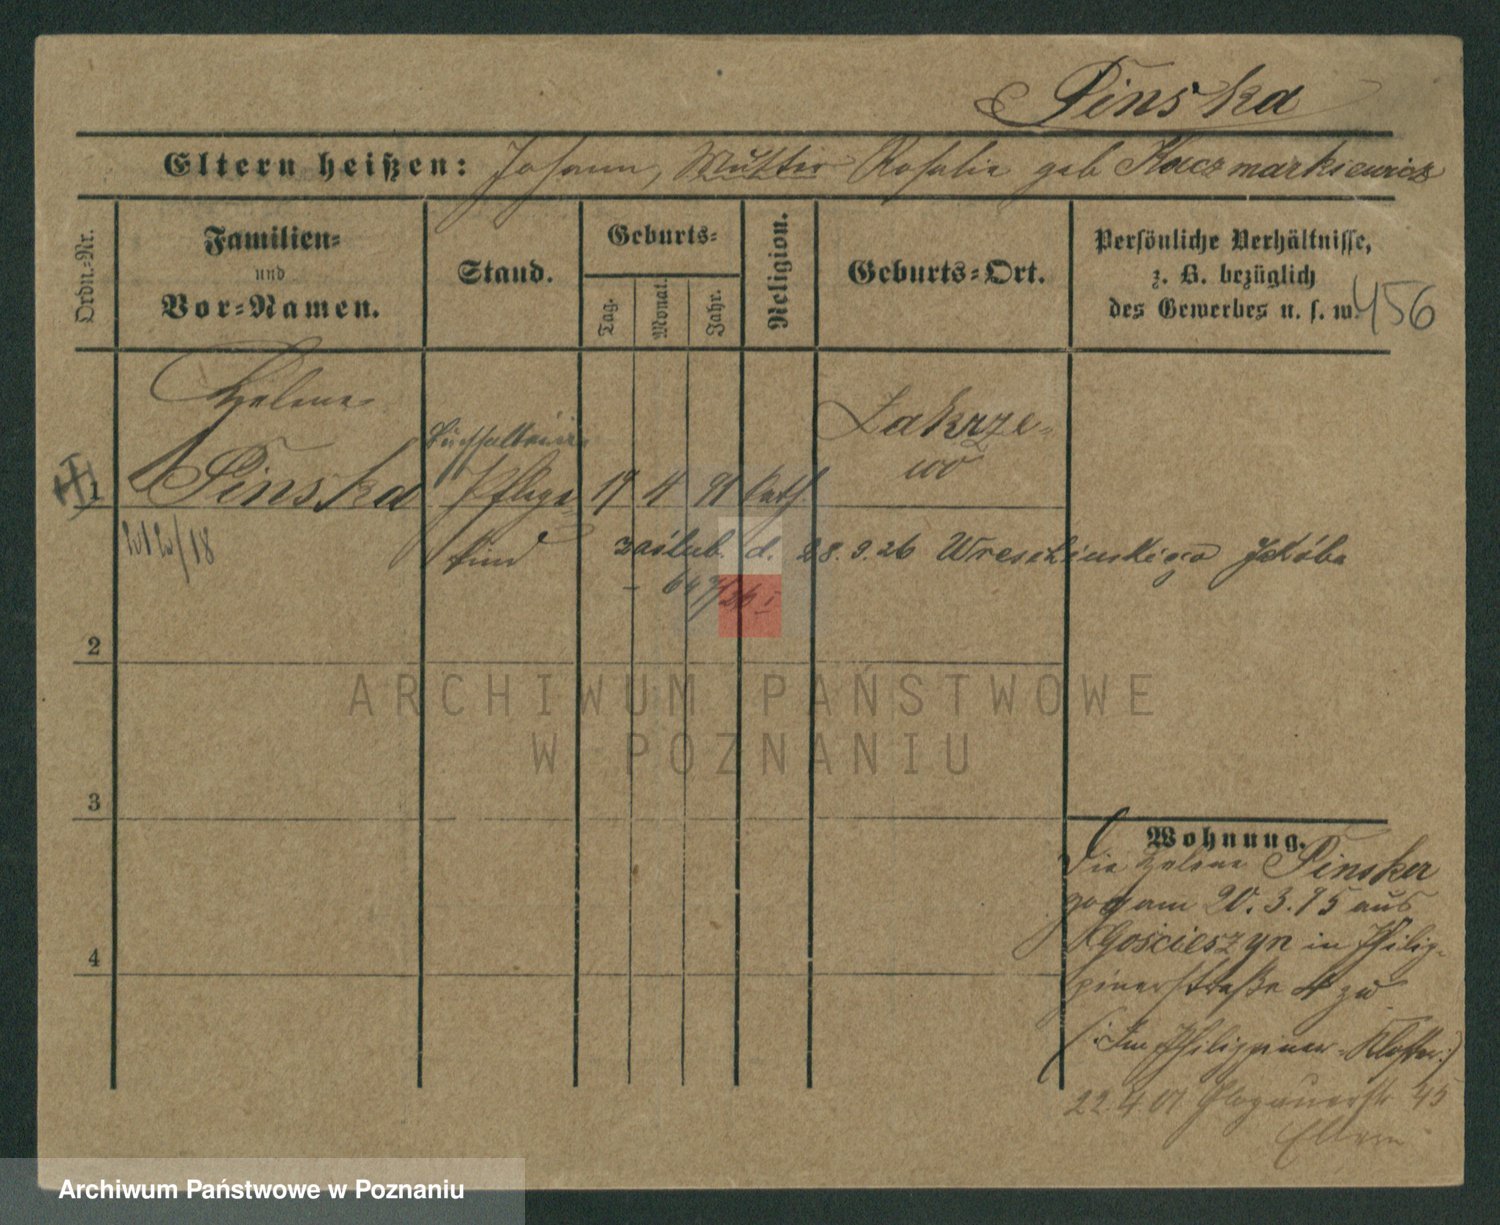 Pinska
Eltern heißen: Johann, Mutter Rosalie geb Kaczmarkiewicz
Ordn.-Nr.
Familien-
und
Vor-Namen.
Stand.
Geburts-
Tag.
Monat.
Jahr.
Religion.
Geburts-Ort.
Persönliche Verhältnisse,
z. B. bezüglich
des Gewerbes u. s. w.
456
1
Helene
Pinska
Buchhalterin
Pflege
kind
19 4 91 kath.
Zakrze-
wo
zaślub. d. 28.9.26 Wreschinskiego Jakóba
2
3
4
Wohnung.
Die Helene Pinsker
zog am 20.3.95 aus
Gościeszyn in Philip-
pinerstraße 4 zu
(: Im Philippiner-Kloster :)
22.4.01 Glogauerstr 45
Eltern
ARCHIWUM PAŃSTWOWE
W POZNANIU
Archiwum Państwowe w Poznaniu